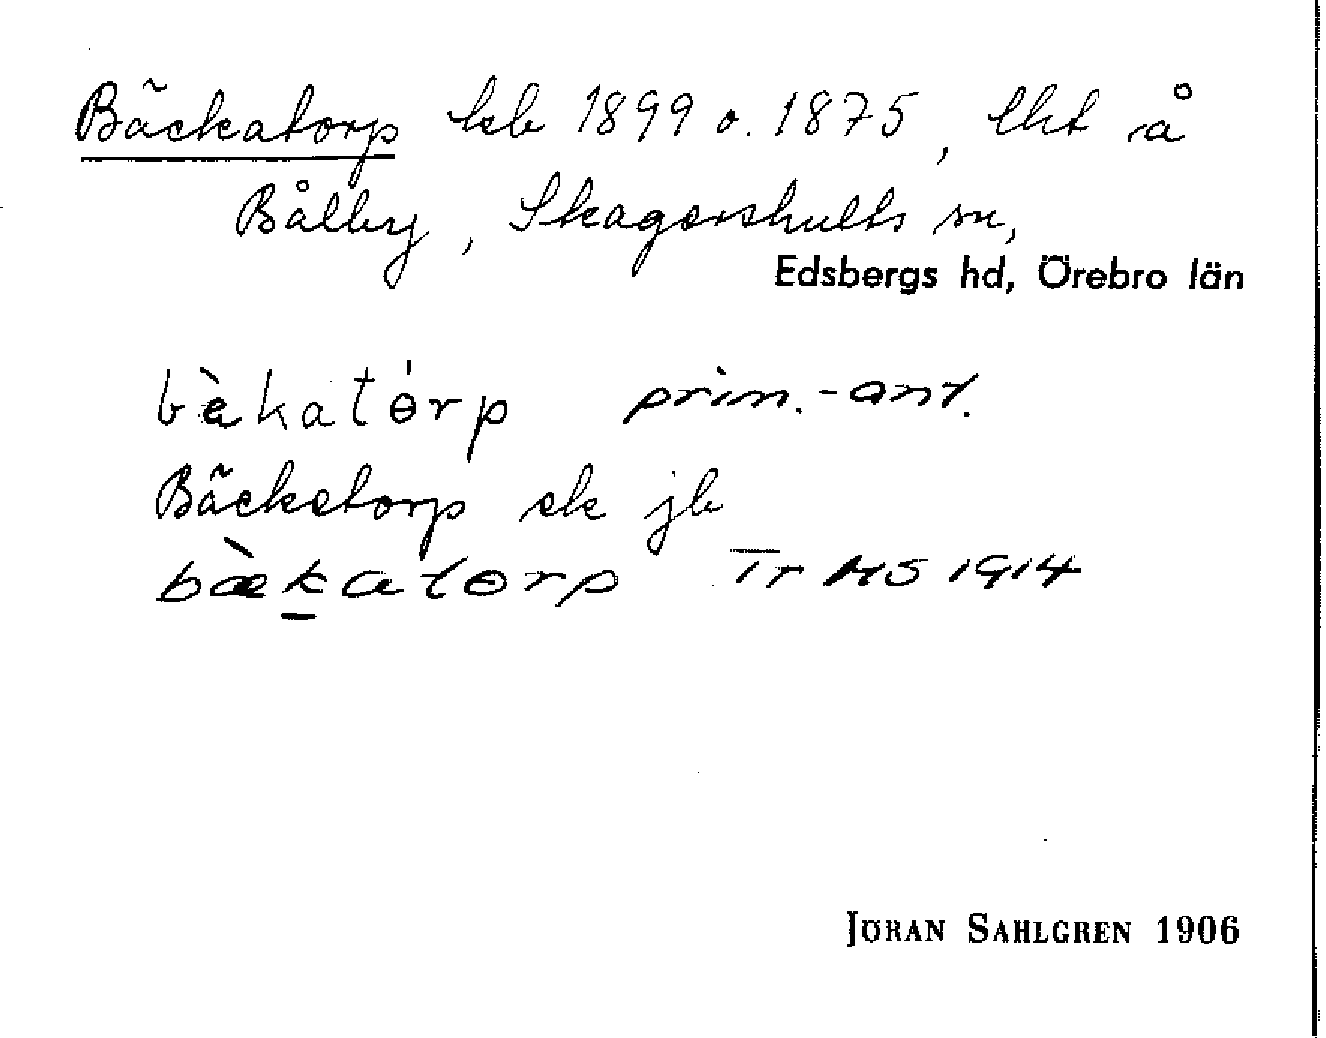 Bäckatorp hsb 1899 o. 1875, lht å
Bålby, Skagershults sn,
Edsbergs hd, Örebro län
bὲkatɵ́rp prim.-ant.
Bäckatorp ek jb
bæ̀ḵatɵrp Tr MS 1914
JÖRAN SAHLGREN 1906